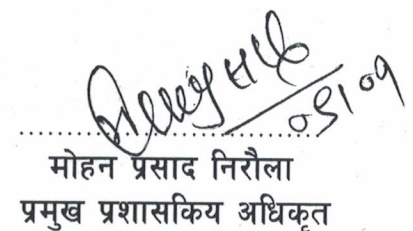 ०९।०१
.....................................
मोहन प्रसाद निरौला
प्रमुख प्रशासकिय अधिकृत